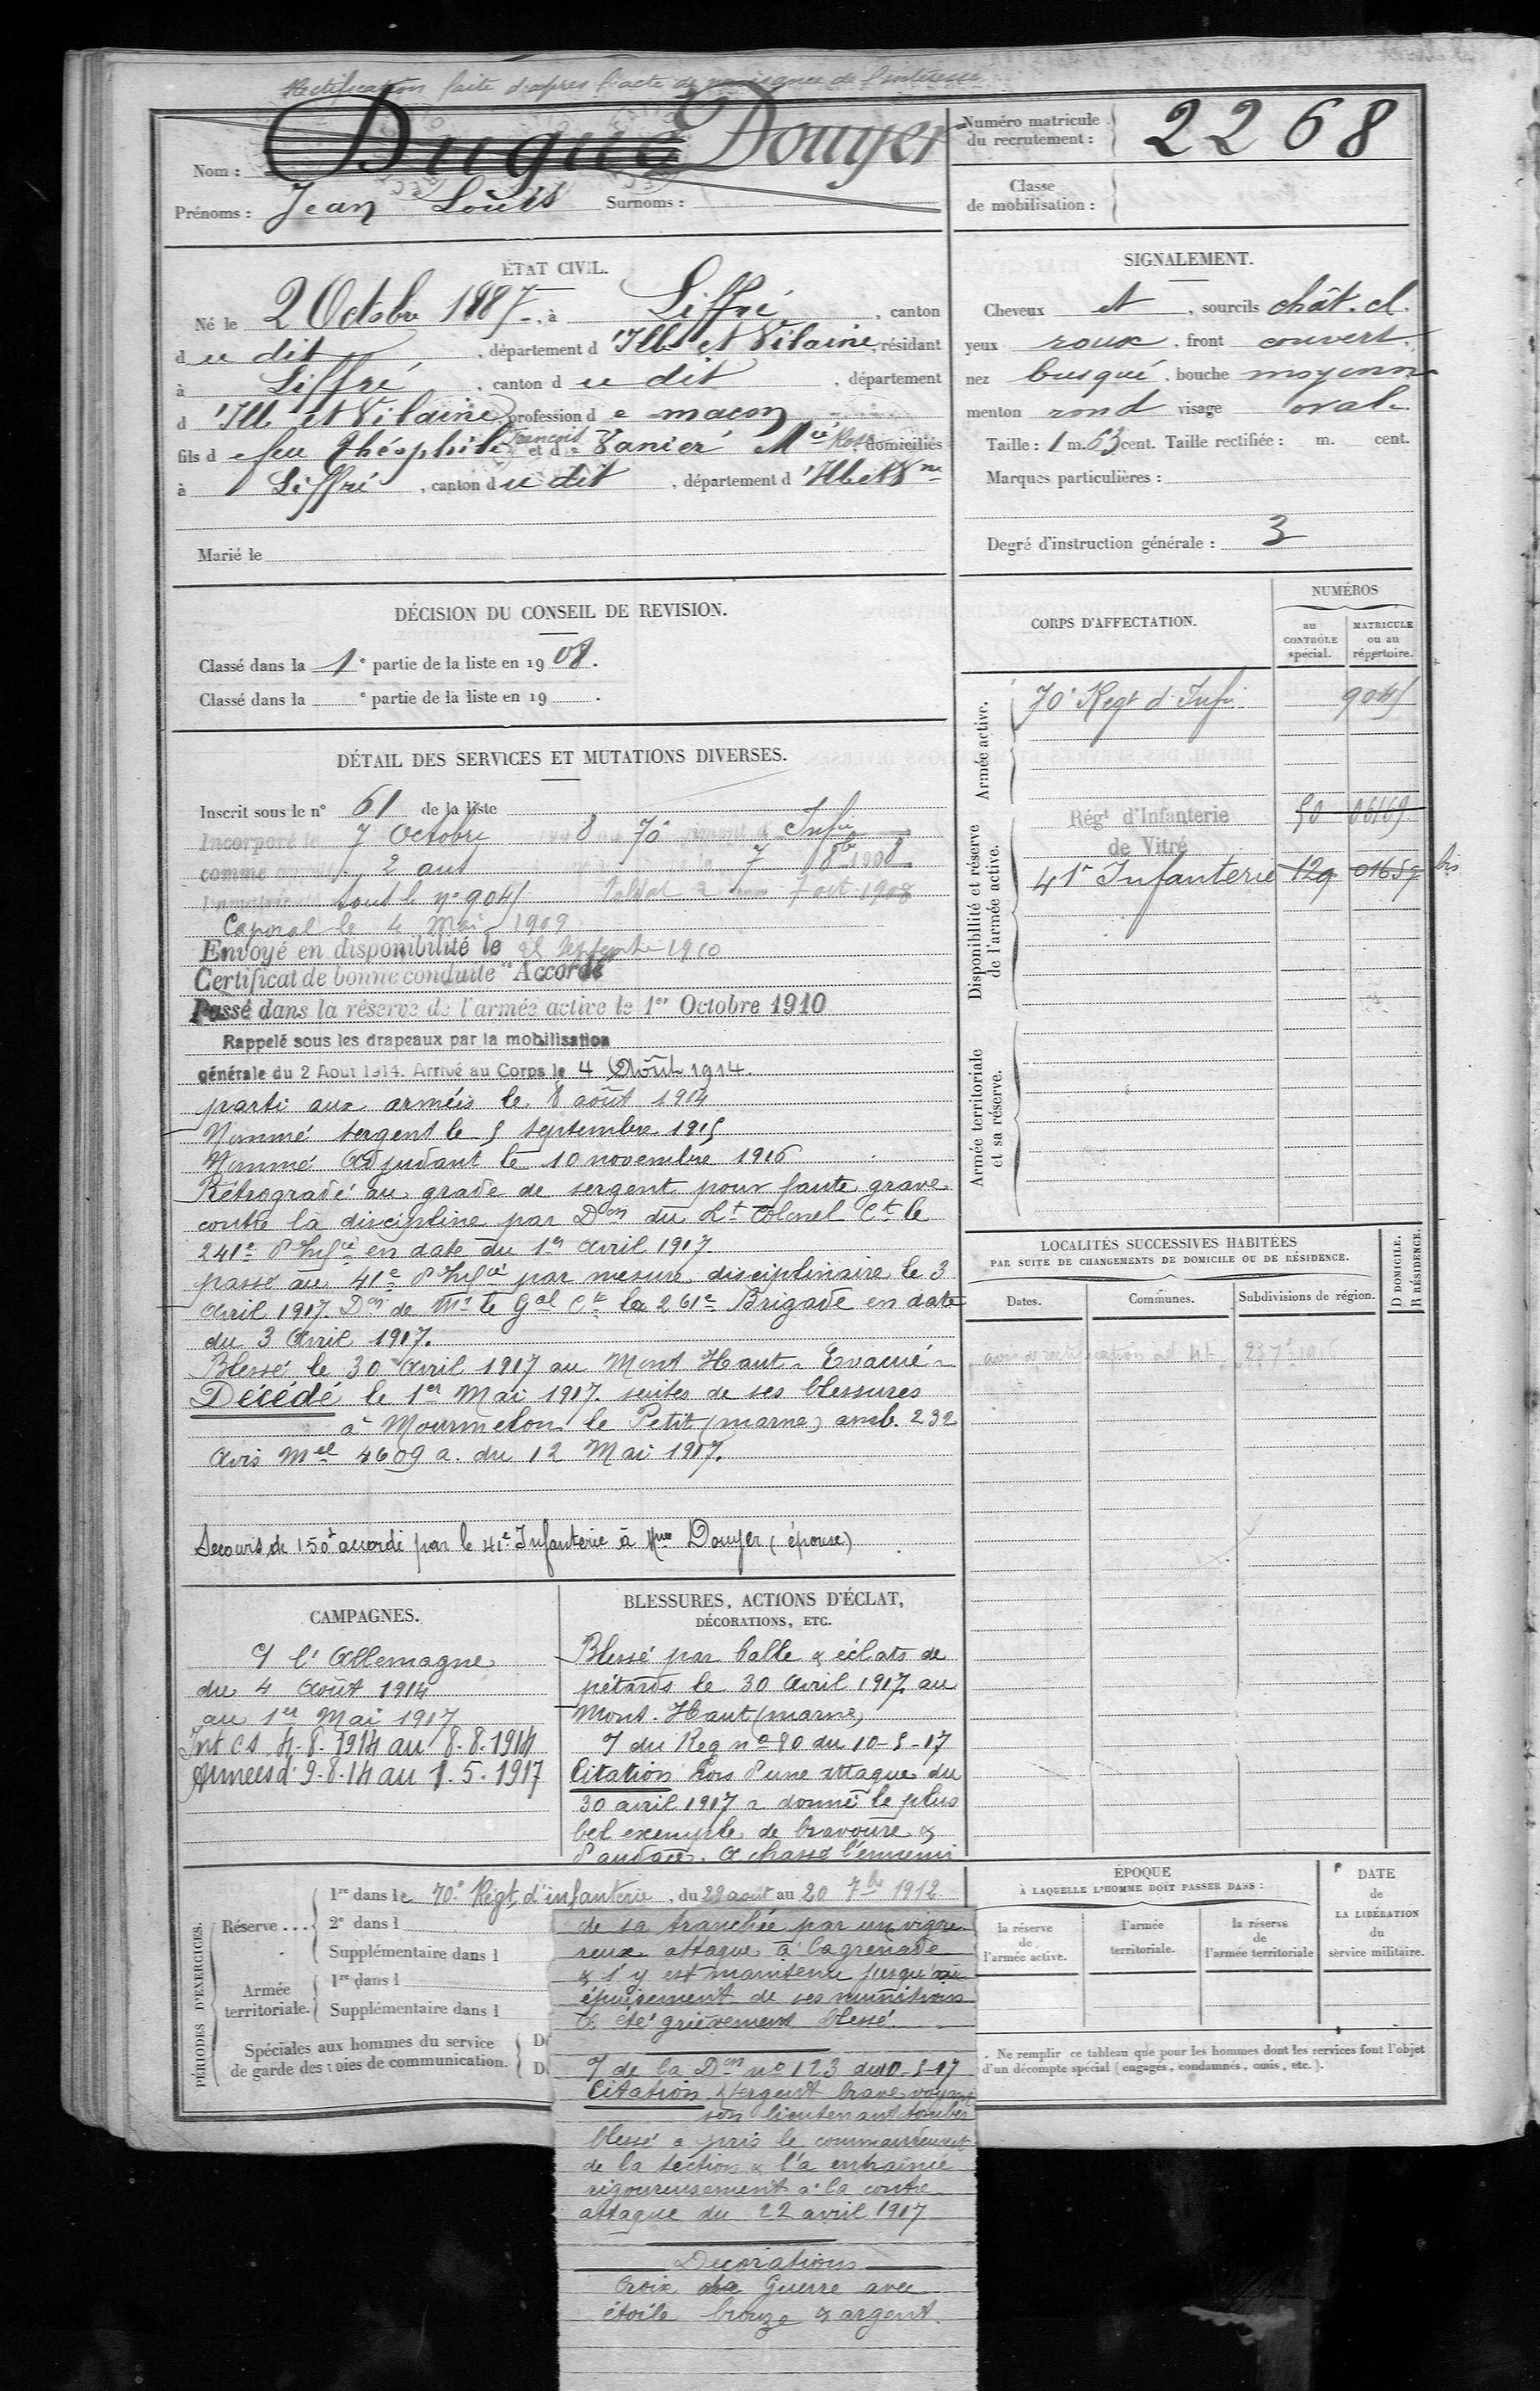 Rectification faite d'après l'acte de naissance de l'intéressé
Nom : Dugué Douyer
Prénoms : Jean Louis Surnoms :
Numéro matricule du recrutement : 2268
Classe de mobilisation :
ÉTAT CIVIL.
Né le 2 Octobre 1887, à Liffré, canton
du dit, département d'Ille et Vilaine, résidant
à Liffré, canton du dit, département
d'Ille et Vilaine, profession de maçon
fils de feu Théophile François et de Vanier Mie Rose domiciliés
à Liffré, canton du dit, département d'Ille et Vne
Marié le
SIGNALEMENT.
Cheveux et, sourcils chât. cl.
yeux roux, front couvert,
nez busqué, bouche moyenne
menton rond visage ovale
Taille : 1 m. 63 cent. Taille rectifiée : m. cent.
Marques particulières :
Degré d'instruction générale : 3
DÉCISION DU CONSEIL DE REVISION.
Classé dans la 1e partie de la liste en 1908.
Classé dans la e partie de la liste en 19 .
DÉTAIL DES SERVICES ET MUTATIONS DIVERSES.
Inscrit sous le n° 61 de la liste
Incorporé le 7 Octobre 8 70 Infie
comme 2 ans 7 8bre 1908
sous le n° 9045 Soldat 2 7 oct 1908
Caporal le 4 Mai 1909
Envoyé en disponibilité le 25 Septembre 1910
Certificat de bonne conduite "Accordé"
Passé dans la réserve de l'armée active le 1er Octobre 1910
Rappelé sous les drapeaux par la mobilisation
générale du 2 Août 1914. Arrivé au Corps le 4 Août 1914.
parti aux armées le 8 août 1914
Nommé sergent le 5 septembre 1915
Nommé Adjudant le 10 novembre 1916
Rétrogradé au grade de sergent pour faute grave
contre la discipline par Don du Lt Colonel Ct le
241e d'Infie en date du 1er Avril 1917.
passé au 41e d'Infie par mesure disciplinaire le 3
Avril 1917. Don de Mr le Gal Ct la 261e Brigade en date
du 3 Avril 1917.
Blessé le 30 Avril 1917 au Mont Haut - Evacué -
Décédé le 1er Mai 1917. suites de ses blessures
à Mourmelon le Petit (marne) amb. 232
Avis Mel 4609 a. du 12 Mai 1917.
Secours de 150f accordé par le 41e Infanterie à Mme Douyer (épouse)
CORPS D'AFFECTATION.
NUMÉROS
au CONTRÔLE spécial.
MATRICULE ou au répertoire.
Armée active.
70e Regt d'Infie 9045
Disponibilité et réserve de l'armée active.
Régt d'Infanterie de Vitré 50 06169
41e Infanterie 129 01659 bis
Armée territoriale et sa réserve.
LOCALITÉS SUCCESSIVES HABITÉES
PAR SUITE DE CHANGEMENTS DE DOMICILE OU DE RÉSIDENCE.
Dates. Communes. Subdivisions de région. D DOMICILE. R RÉSIDENCE.
avis de rectification
CAMPAGNES.
Ct l'Allemagne
du 4 Août 1914
au 1er Mai 1917
Int CS 4.8.1914 au 8.8.1914
Armées d. 9.8.14 au 1.5.1917
BLESSURES, ACTIONS D'ÉCLAT,
DÉCORATIONS, ETC.
Blessé par balle & éclats de
pétards le 30 Avril 1917 au
Mont-Haut (marne)
O du Reg n° 80 du 10-5-17
Citation Lors d'une attaque du
30 avril 1917 a donné le plus
bel exemple de bravoure &
d'audace. A chassé l'ennemi
de sa tranchée par un vigou-
reux attaque à la grenade
& s'y est maintenu jusqu'au
épuisement de ses munitions
A été grièvement blessé.
O de la Don n° 123 du 10-5-17
Citation Sergent brave voyant
son lieutenant tomber
blessé a pris le commandement
de la section & l'a entrainée
vigoureusement à la contre-
attaque du 22 avril 1917
Decorations
Croix de Guerre avec
étoile bronze & argent.
PÉRIODES D'EXERCICES.
Réserve ... 1re dans le 70e Régt d'infanterie, du 29 août au 20 7bre 1912
2e dans l
Supplémentaire dans l
Armée territoriale. 1re dans l
Supplémentaire dans l
Spéciales aux hommes du service
de garde des voies de communication.
ÉPOQUE
À LAQUELLE L'HOMME DOIT PASSER DANS :
la réserve de l'armée active.
l'armée territoriale.
la réserve de l'armée territoriale
DATE de LA LIBÉRATION du service militaire.
Ne remplir ce tableau que pour les hommes dont les services font l'objet
d'un décompte spécial (engagés, condamnés, omis, etc.).